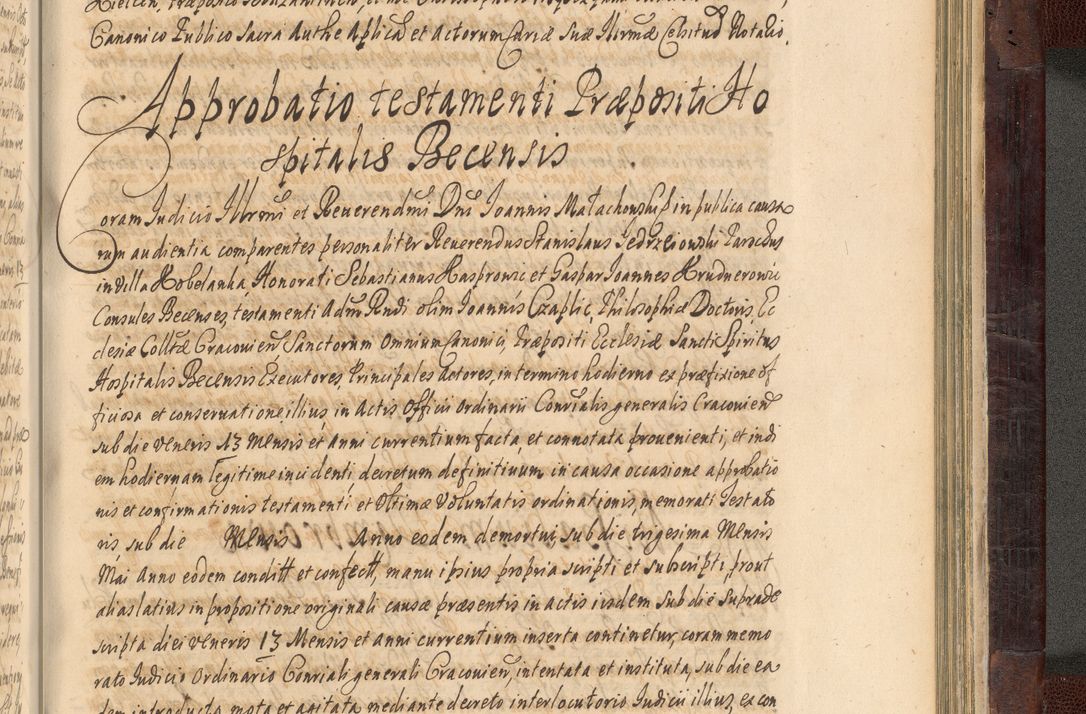 Canonico Publico Sacra Authe Aplica et Actorum Curiæ Suæ Illrmæ Celsitud Notario.
Approbatio testamenti Præpositi Ho
spitalis Becensis
Coram Judicio Illrmi et Reuerendmi Dni Joannis Małachowski in publica causa
rum audientia comparentes personaliter Reuerendus Stanislaus Jedrzeiowski Parochus
in villa Kobelanka, Honorati Sebastianus Kasprowic et Gaspar Joannes Krudnerowic
Consules Becenses, testamenti Adm Rndi olim Joannis Czaplic, Philosophiæ Doctoris, Ec
clesiæ Colltæ Cracouien, Sanctorum Omnium Canonici, Præpositi Ecclesiæ Sancti Spiritus
Hospitalis Becensis Executores, Principales Actores, in termino hodierno ex præfixione of
ficiosa et conseruatione illius in Actis Officii Ordinarii Consrialis generalis Cracouien
sub die Veneris 13 Mensis et Anni currentium facta, et connotata prouenienti, et indi
em hodiernam legitime incidenti, decretum definitiuum in causa occasione approbatio
nis et confirmationis testamenti et Vltimæ Voluntatis ordinationis, memorati Testato
ris, sub die Mensis Anno eodem demortui, sub die trigesima Mensis
Mai Anno eodem conditt et confectt, manu ipsius propria scripti et subscripti, prout
alias latius in propositione originali causæ præsentis in actis iisdem sub die suprade
scripta diei Veneris 13 Mensis et Anni currentium inserta continetur, coram memo
rato Judicio Ordinario Consriali generali Cracouien, intentata et instituta, sub die ea
dem introducta mota et agitata mediante decreto interlocutorio Judicii illius ex con